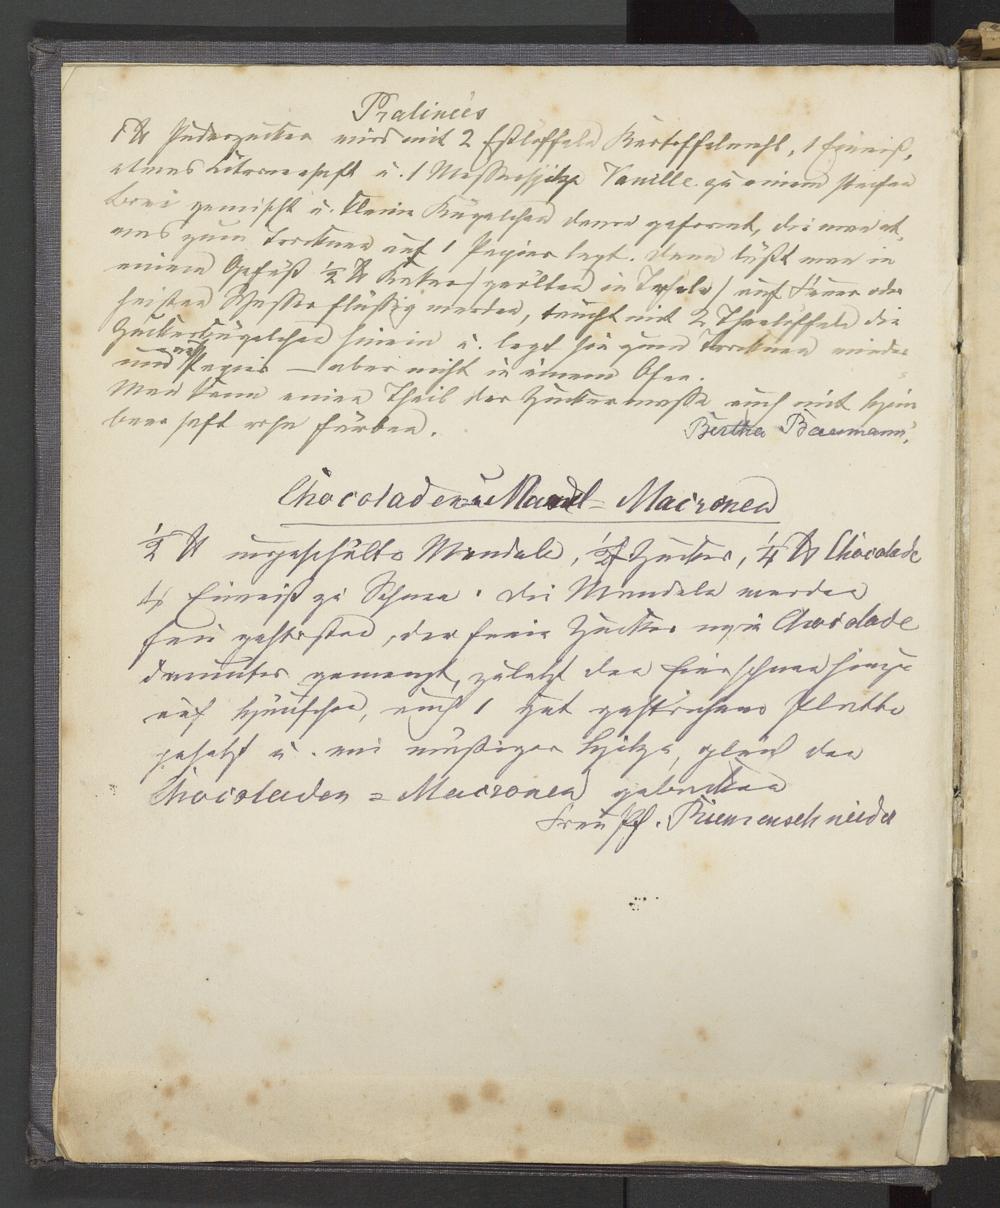 Pralinées
1 ℔ Puderzucker wird mit 2 Eßlöffeln Kartoffelmehl, 1 Eiweiß,
etwas Citronensaft u. 1 Messerspitze Vanille zu einem steifen
Brei gemischt u. kleine Kügelchen davon geformt, die man
zum Trocknen auf 1 Papier legt. Dann läßt man in
einem Gefäß ½ ℔ (in Tafeln) auf Feuer oder
heißem Wasser flüssig werden, taucht mit 2 Theelöffeln die
Zuckerkügelchen hinein u. legt sie zum Trocknen wieder
auf Papier — aber nicht in einem Ofen.
Man kann einen Theil der Zuckermasse auch mit Him
beersaft rosa färben.
Bertha Baumann.
Chocoladen u. Mandel-Macronen
½ ℔ ungeschälte Mandeln, ½ ℔ Zucker, ¼ ℔ Chocolade
4 Eiweiß zu Schnee. Die Mandeln werden
fein gestoßen, der feine Zucker Chocolade
darunter gemengt, zuletzt den Eierschnee hinzu
auf Häufchen, auf 1 gut gestrichene Platte
gesetzt u. bei mäßiger Hitze, gleich den
Chocoladen = Macronen gebacken
Frau Ph. Riemenschneider